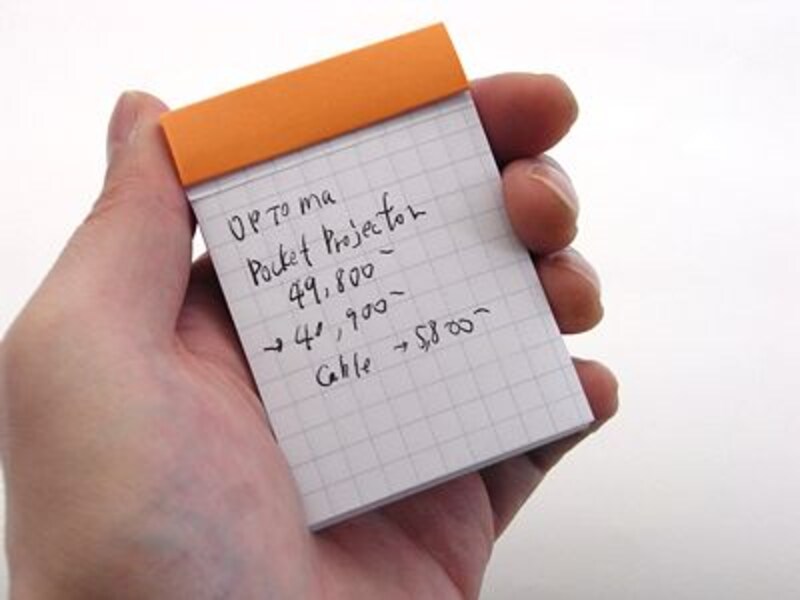 OPTOma
Pocket Projector
49,800-
→ 40,900-
Cable → 5,800-